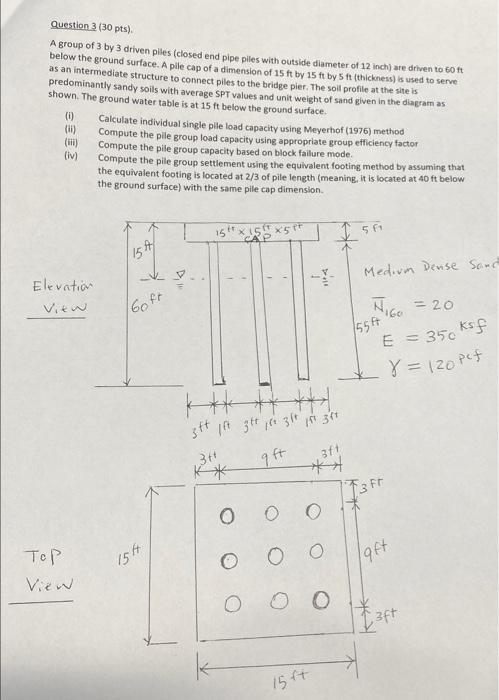 Question 3 (30 pts).
A group of 3 by 3 driven piles (closed end pipe piles with outside diameter of 12 inch) are driven to 60 ft
below the ground surface. A pile cap of a dimension of 15 ft by 15 ft by 5 ft (thickness) is used to serve
as an intermediate structure to connect piles to the bridge pier. The soil profile at the site is
predominantly sandy soils with average SPT values and unit weight of sand given in the diagram as
shown. The ground water table is at 15 ft below the ground surface.
(i) Calculate individual single pile load capacity using Meyerhof (1976) method
(ii) Compute the pile group load capacity using appropriate group efficiency factor
(iii) Compute the pile group capacity based on block failure mode.
(iv) Compute the pile group settlement using the equivalent footing method by assuming that
the equivalent footing is located at 2/3 of pile length (meaning, it is located at 40 ft below
the ground surface) with the same pile cap dimension.
15ft x 15ft x 5ft
CAP
5 ft
15ft
Medium Dense Sand
Elevation
View
60ft
N160 = 20
55ft
E = 350 ksf
γ = 120 pcf
3ft 1ft 3ft 1ft 3ft 1ft 3ft
3ft 9ft 3ft
3ft
Top
View
15ft
9ft
3ft
15ft